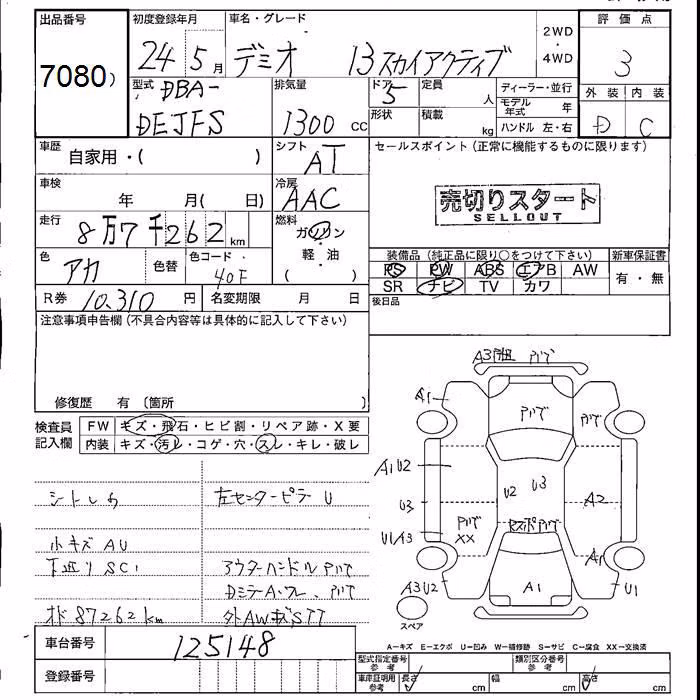 出品番号 初度登録年月 車名・グレード 2WD ・ 4WD 評価点
7080) 24 5月 デミオ 13スカイアクティブ 3
型式 DBA- 排気量 ドア 5 定員 人 ディーラー・並行 外装 内装
DEJFS 1300 cc 形状 積載 kg モデル年式 年 D C
ハンドル 左・右
車歴 自家用・( ) シフト AT セールスポイント(正常に機能するものに限ります)
車検 年 月( 日) 冷房 AAC 売切りスタート
SELLOUT
走行 8万7千262km 燃料 ガソリン
軽・油
( )
装備品(純正品に限り○をつけて下さい) 新車保証書
色 アカ 色替 色コード 40F PS PW ABS エアB AW 有・無
SR ナビ TV カワ
R券 10,310円 名変期限 月 日 後日品
注意事項申告欄(不具合内容等は具体的に記入して下さい)
修復歴 有(箇所 )
検査員記入欄 FW キズ・飛石・ヒビ割・リペア跡・X要
内装 キズ・汚レ・コゲ・穴・スレ・キレ・破レ
シトしわ 左センターピラーU
小キズAU
下廻りSC1 アウターハンドルPハゲ
オド87262km
A1 Pハゲ Pハゲ
A1U2 U2 U3 A2
U3
U1A3 Pハゲ XX
A1
A3U2 A1 U1
スペア
車台番号 125148
A−キズ E−エクボ U−凹み W−補修跡 S−サビ C−腐食 XX−交換済
登録番号
型式指定番号 参考 類別区分番号 参考
車庫証明用 参考 長さ cm 幅 cm 高さ cm